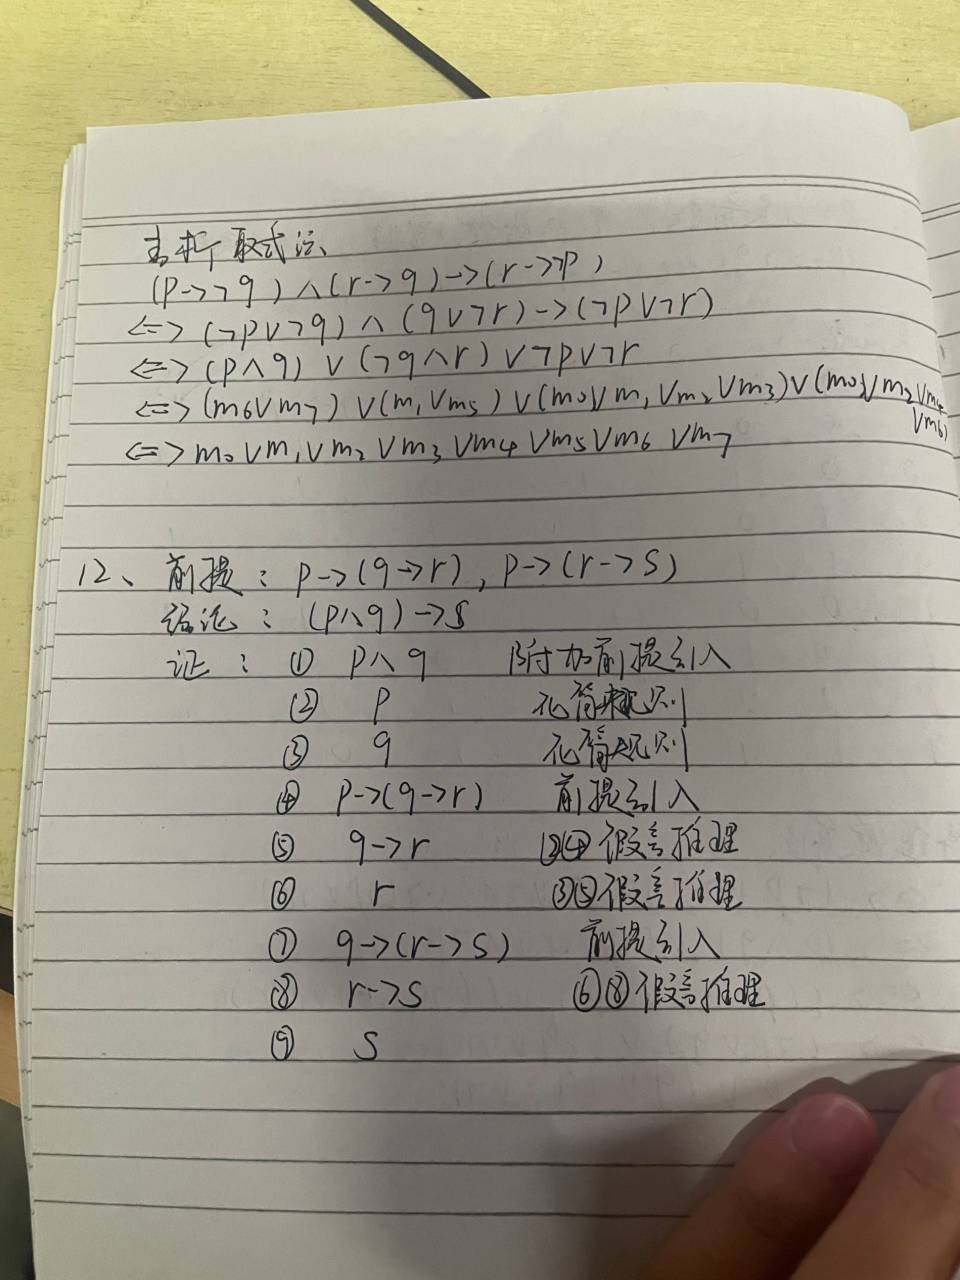 主析取式法
(p->¬q)∧(r->q)->(r->¬p)
<=>(¬p∨¬q)∧(q∨¬r)->(¬p∨¬r)
<=>(p∧q)∨(¬q∧r)∨¬p∨¬r
<=>(m6∨m7)∨(m1∨m5)∨(m0∨m1∨m2∨m3)∨(m0∨m2∨m4∨m6)
<=>m0∨m1∨m2∨m3∨m4∨m5∨m6∨m7
12、前提：p->(q->r), p->(r->s)
结论：(p∧q)->s
证：① p∧q 附加前提引入
② p 化简规则
③ q 化简规则
④ p->(q->r) 前提引入
⑤ q->r ②④假言推理
⑥ r ③⑤假言推理
⑦ q->(r->s) 前提引入
⑧ r->s ⑥⑧假言推理
⑨ s